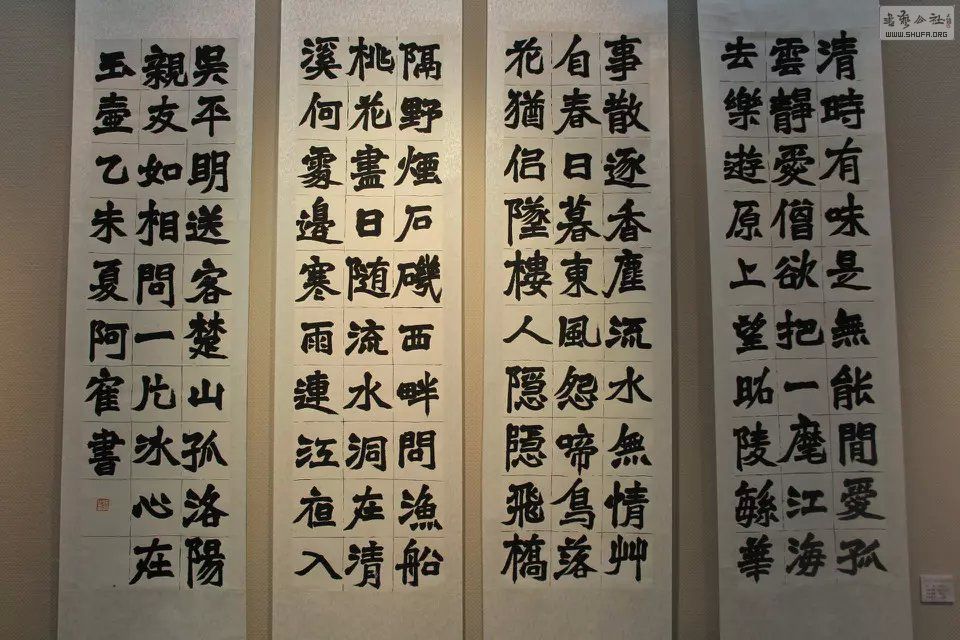 清時有味是無能閒愛孤
雲靜愛僧欲把一麾江海
去樂遊原上望昭陵緐華
事散逐香塵流水無情艸
自春日暮東風怨啼鳥落
花猶侣墜樓人隱隱飛橋
隔野煙石磯西畔問漁船
桃花盡日随流水洞在清
溪何處邊寒雨連江夜入
吳平明送客楚山孤洛陽
親友如相問一片冰心在
玉壺乙未夏阿隺書
書藝公社
WWW.SHUFA.ORG